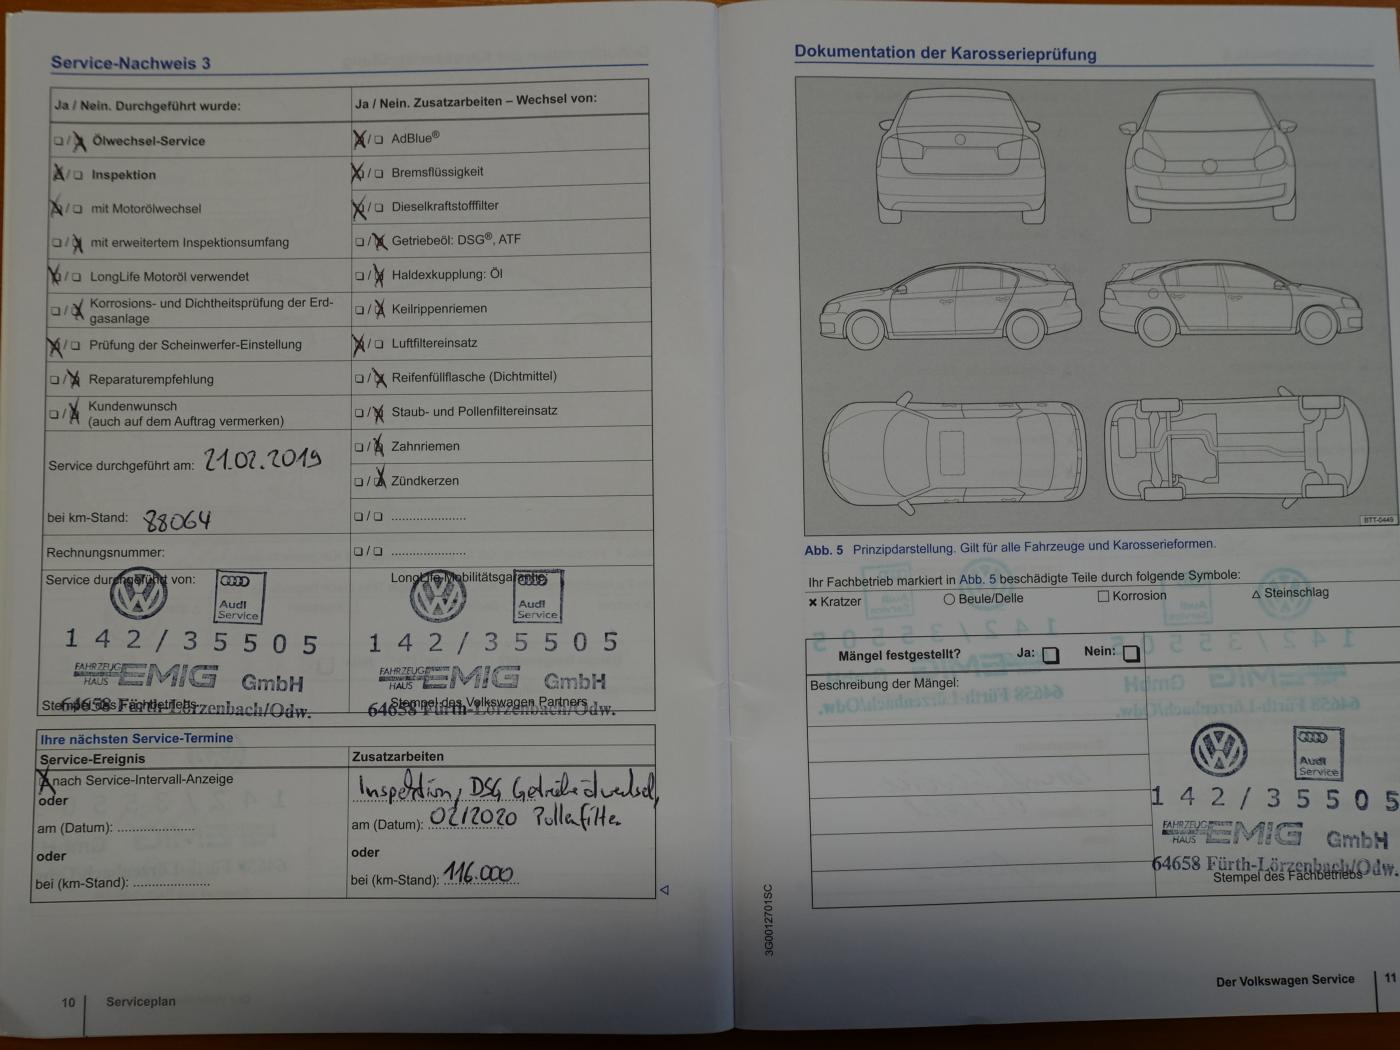 Service-Nachweis 3
Ja / Nein. Durchgeführt wurde:
❏ / ❏ Ölwechsel-Service
❏ / ❏ Inspektion
❏ / ❏ mit Motorölwechsel
❏ / ❏ mit erweitertem Inspektionsumfang
❏ / ❏ LongLife Motoröl verwendet
❏ / ❏ Korrosions- und Dichtheitsprüfung der Erd-
gasanlage
❏ / ❏ Prüfung der Scheinwerfer-Einstellung
❏ / ❏ Reparaturempfehlung
❏ / ❏ Kundenwunsch
(auch auf dem Auftrag vermerken)
Service durchgeführt am: 21.02.2019
bei km-Stand: 88064
Rechnungsnummer:
Ja / Nein. Zusatzarbeiten – Wechsel von:
❏ / ❏ AdBlue®
❏ / ❏ Bremsflüssigkeit
❏ / ❏ Dieselkraftstofffilter
❏ / ❏ Getriebeöl: DSG®, ATF
❏ / ❏ Haldexkupplung: Öl
❏ / ❏ Keilrippenriemen
❏ / ❏ Luftfiltereinsatz
❏ / ❏ Reifenfüllflasche (Dichtmittel)
❏ / ❏ Staub- und Pollenfiltereinsatz
❏ / ❏ Zahnriemen
❏ / ❏ Zündkerzen
❏ / ❏ .....................
❏ / ❏ .....................
Service durchgeführt von:
Audi
Service
142/35505
FAHRZEUG
HAUS EMIG GmbH
64658 Fürth-Lörzenbach/Odw.
Stempel des Fachbetriebs
LongLife Mobilitätsgarantie
Audi
Service
142/35505
FAHRZEUG
HAUS EMIG GmbH
64658 Fürth-Lörzenbach/Odw.
Stempel des Volkswagen Partners
Ihre nächsten Service-Termine
Service-Ereignis
nach Service-Intervall-Anzeige
oder
am (Datum): .....................
oder
bei (km-Stand): .....................
Zusatzarbeiten
Inspektion, DSG Getriebeölwechsel,
am (Datum): 02/2020 Pollenfilter
oder
bei (km-Stand): 116.000
10 Serviceplan
Dokumentation der Karosserieprüfung
BTT-0449
Abb. 5 Prinzipdarstellung. Gilt für alle Fahrzeuge und Karosserieformen.
Ihr Fachbetrieb markiert in Abb. 5 beschädigte Teile durch folgende Symbole:
✖ Kratzer ○ Beule/Delle □ Korrosion △ Steinschlag
Mängel festgestellt? Ja: ❏ Nein: ❏
Beschreibung der Mängel:
Audi
Service
142/35505
FAHRZEUG
HAUS EMIG GmbH
64658 Fürth-Lörzenbach/Odw.
Stempel des Fachbetriebs
3G0012701SC
Der Volkswagen Service 11